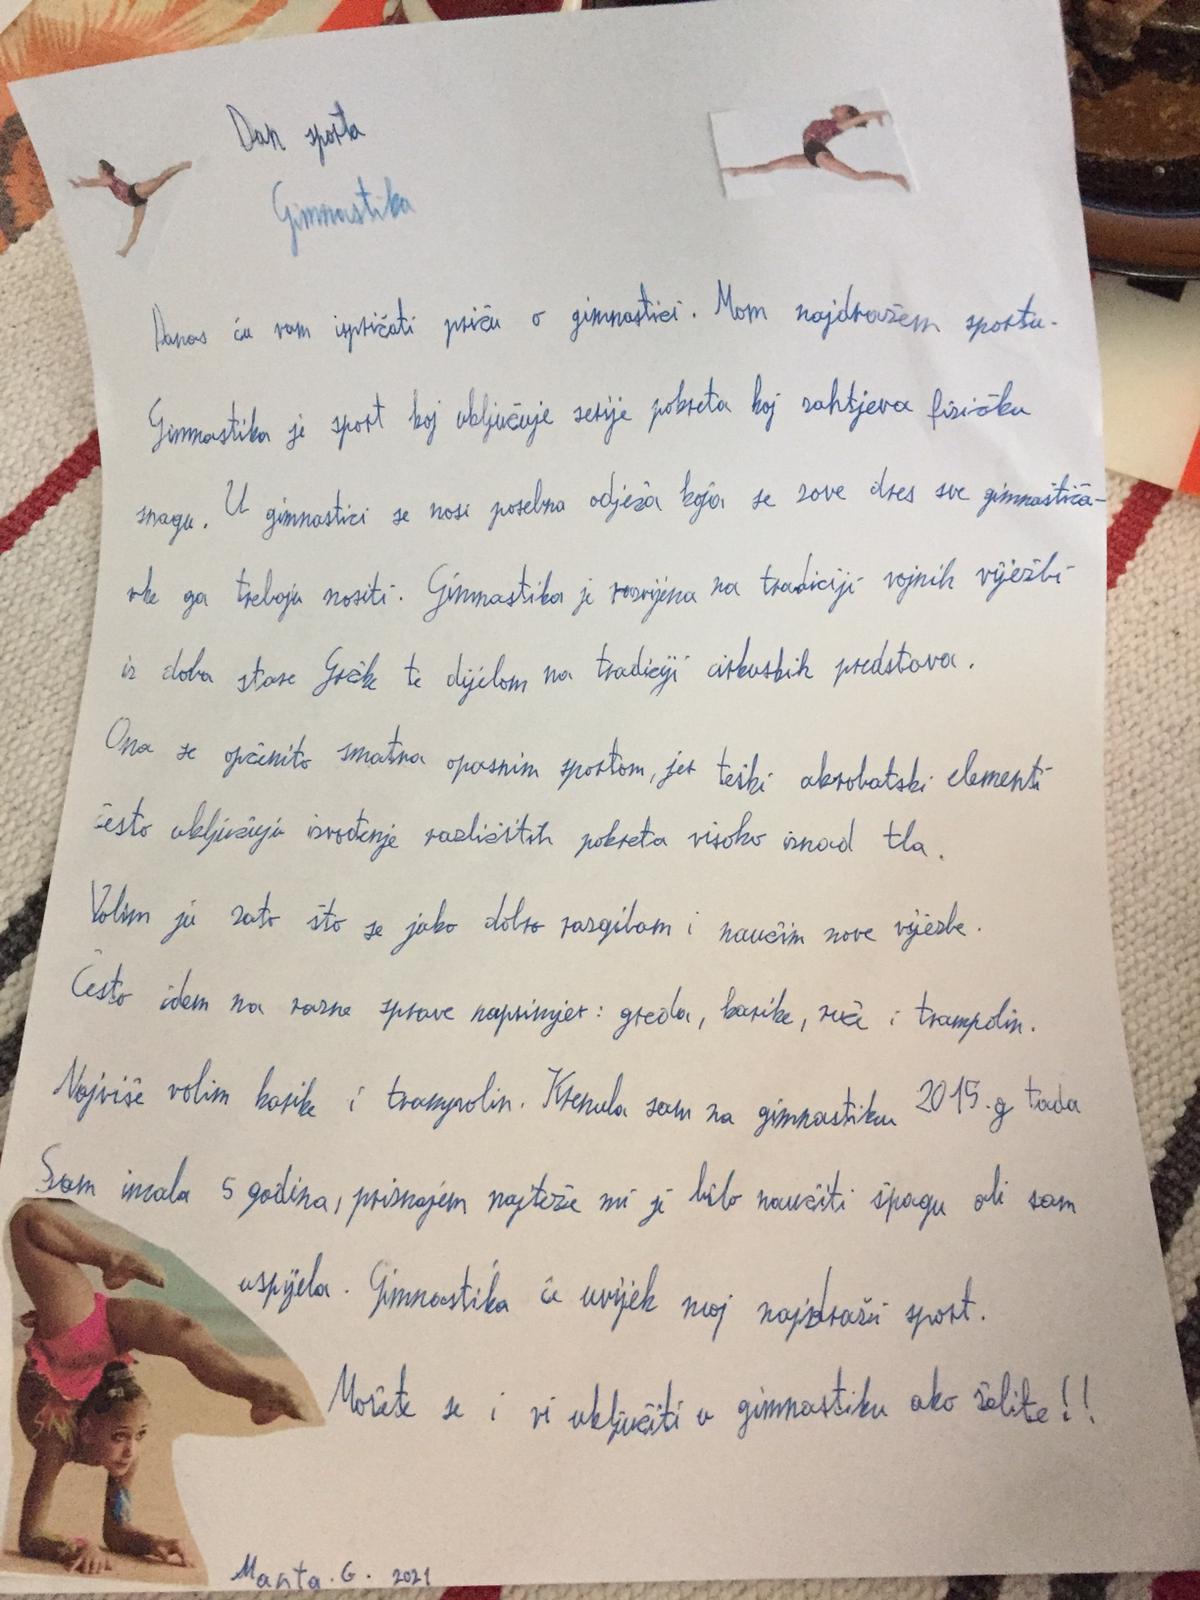 Dan sporta
Gimnastika
Danas ću vam ispričati priču o gimnastici. Mom najdražem sportu.
Gimnastika je sport koj uključuje serije pokreta koj zahtjeva fizičku
snagu. U gimnastici se nosi posebna odjeća koja se zove dres sve gimnastiča-
rke ga trebaju nositi. Gimnastika je razvijena na tradiciji vojnih vježbi
iz doba stare Grčke te dijelom na tradiciji cirkuskih predstava.
Ona se općenito smatra opasnim sportom, jer teški akrobatski elementi
često uključuju izvođenje različitih pokreta visoko iznad tla.
Volim ju zato što se jako dobro razgibam i naučim nove vježbe.
Često idem na razne sprave naprimjer: greda, karike, ruče i trampolin.
Najviše volim karike i trampolin. Krenula sam na gimnastiku 2015.g tada
Sam imala 5 godina, priznajem najteže mi je bilo naučiti špagu ali sam
uspjela. Gimnastika će uvijek moj najdraži sport.
Možete se i vi uključiti u gimnastiku ako želite!!
Marta. G. 2021